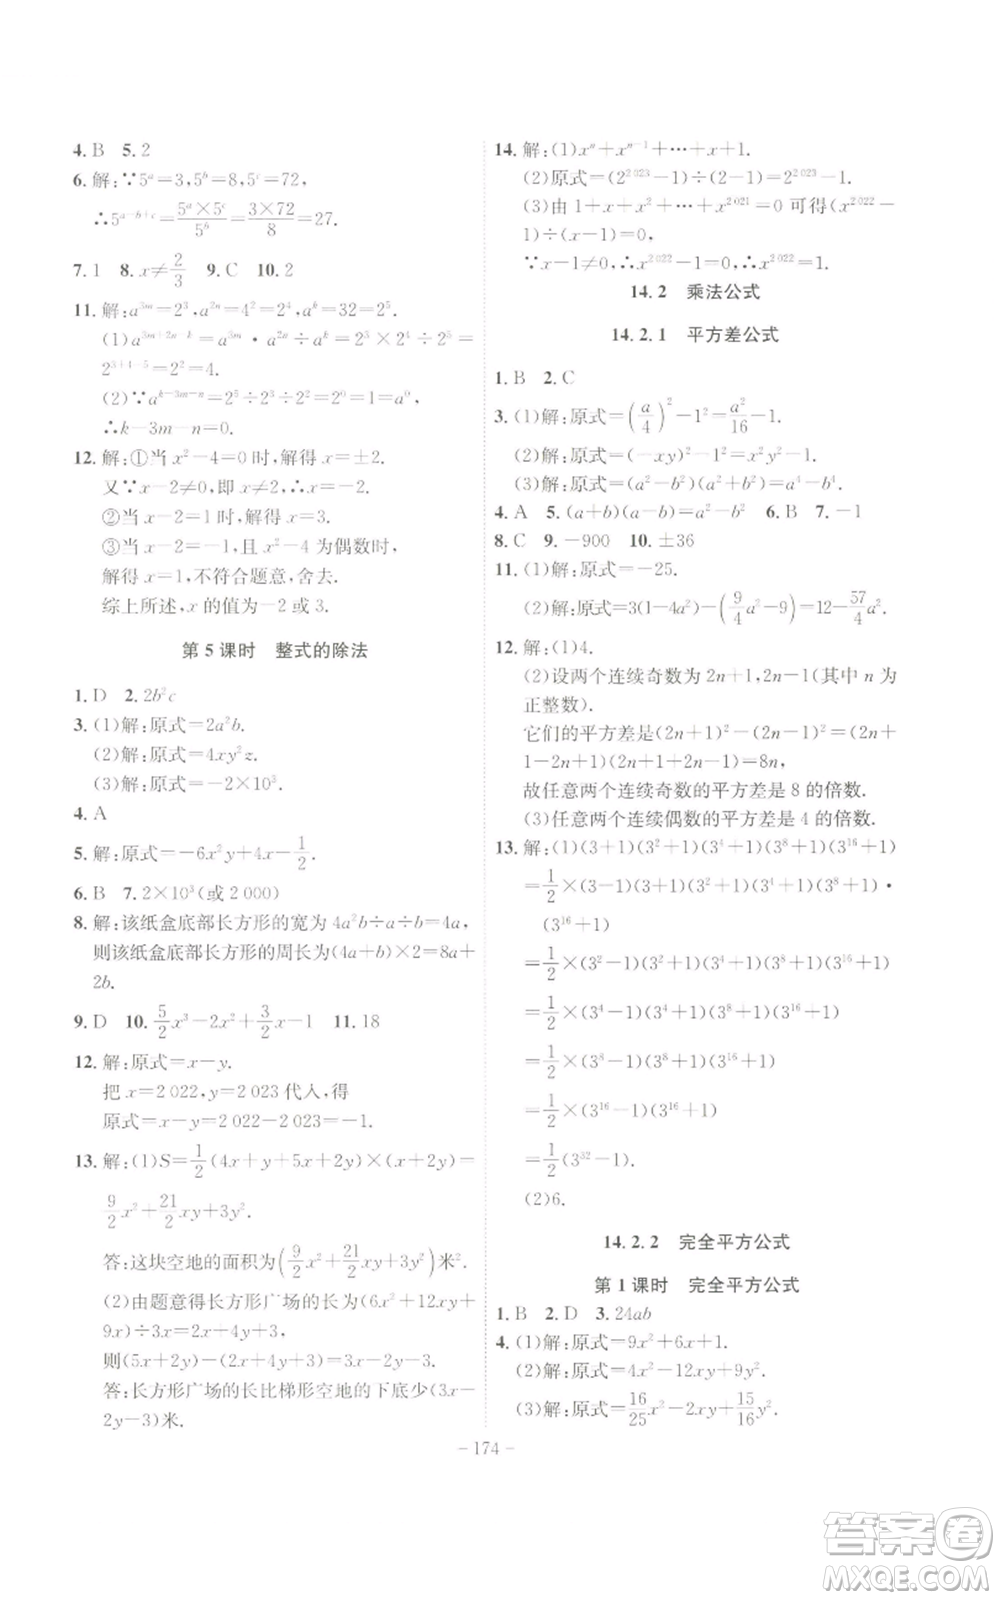 4. B 5. 2
6. 解:∵5ᵃ=3,5ᵇ=8,5ᶜ=72,
∴5ᵃ⁻ᵇ⁺ᶜ=(5ᵃ×5ᶜ)/5ᵇ=(3×72)/8=27.
7. 1 8. x≠2/3 9. C 10. 2
11. 解:a³ᵐ=2³,a²ⁿ=4²=2⁴,aᵏ=32=2⁵.
(1)a^(3m+2n-k)=a³ᵐ·a²ⁿ÷aᵏ=2³×2⁴÷2⁵=
2³⁺⁴⁻⁵=2²=4.
(2)∵a^(k-3m-n)=2⁵÷2³÷2²=2⁰=1=a⁰,
∴k-3m-n=0.
12. 解:①当 x²-4=0 时,解得 x=±2.
又∵x-2≠0,即 x≠2,∴x=-2.
②当 x-2=1时,解得 x=3.
③当 x-2=-1,且 x²-4 为偶数时,
解得 x=1,不符合题意,舍去.
综上所述,x 的值为-2 或 3.
第 5 课时 整式的除法
1. D 2. 2b²c
3. (1)解:原式=2a²b.
(2)解:原式=4xy²z.
(3)解:原式=-2×10³.
4. A
5. 解:原式=-6x²y+4x-1/2.
6. B 7. 2×10³(或 2 000)
8. 解:该纸盒底部长方形的宽为 4a²b÷a÷b=4a,
则该纸盒底部长方形的周长为(4a+b)×2=8a+
2b.
9. D 10. 5/2x³-2x²+3/2x-1 11. 18
12. 解:原式=x-y.
把 x=2 022,y=2 023 代入,得
原式=x-y=2 022-2 023=-1.
13. 解:(1)S=1/2(4x+y+5x+2y)×(x+2y)=
9/2x²+21/2xy+3y².
答:这块空地的面积为(9/2x²+21/2xy+3y²)米².
(2)由题意得长方形广场的长为(6x²+4xy+
9x)÷3x=2x+4/3y+3.
(5x+2y)-(2x+4/3y+3)=3x+2/3y-3(米).
答:长方形广场的长比梯形空地的下底少(3x+
2/3y-3)米.
14. 解:(1)xⁿ+xⁿ⁻¹+…+x+1.
(2)原式=(2²⁰²³-1)÷(2-1)=2²⁰²³-1.
(3)由 1+x+x²+…+x²⁰²¹=0 可得(x²⁰²²-
1)÷(x-1)=0.
∵x-1≠0,∴x²⁰²²-1=0,∴x²⁰²²=1.
14.2 乘法公式
14.2.1 平方差公式
1. B 2. C
3. (1)解:原式=(a/4)²-1²=a²/16-1.
(2)解:原式=(-xy)²-1²=x²y²-1.
(3)解:原式=(a²-b²)(a²+b²)=a⁴-b⁴.
4. A 5. (a+b)(a-b)=a²-b² 6. B 7. -1
8. C 9. -900 10. ±36
11. (1)解:原式=-25.
(2)解:原式=3(1-4a²)-(9/4a²-9)=12-57/4a².
12. 解:(1)4.
(2)设两个连续奇数为 2n+1,2n-1(其中 n 为
正整数).
它们的平方差是(2n+1)²-(2n-1)²=(2n+
1-2n+1)(2n+1+2n-1)=8n,
故任意两个连续奇数的平方差是 8 的倍数.
(3)任意两个连续偶数的平方差是 4 的倍数.
13. 解:(1)(3+1)(3²+1)(3⁴+1)(3⁸+1)(3¹⁶+1)
=1/2×(3-1)(3+1)(3²+1)(3⁴+1)(3⁸+1)·
(3¹⁶+1)
=1/2×(3²-1)(3²+1)(3⁴+1)(3⁸+1)(3¹⁶+1)
=1/2×(3⁴-1)(3⁴+1)(3⁸+1)(3¹⁶+1)
=1/2×(3⁸-1)(3⁸+1)(3¹⁶+1)
=1/2×(3¹⁶-1)(3¹⁶+1)
=1/2×(3³²-1).
(2)6.
14.2.2 完全平方公式
第 1 课时 完全平方公式
1. B 2. D 3. 24ab
4. (1)解:原式=9x²+6x+1.
(2)解:原式=4x²-12xy+9y².
(3)解:原式=16/25x²-6/5xy+
- 174 -
答案圈
MXQE.COM